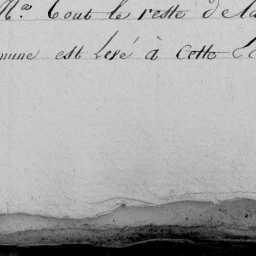 M.de tout le reste de la
mune est lésé à cette